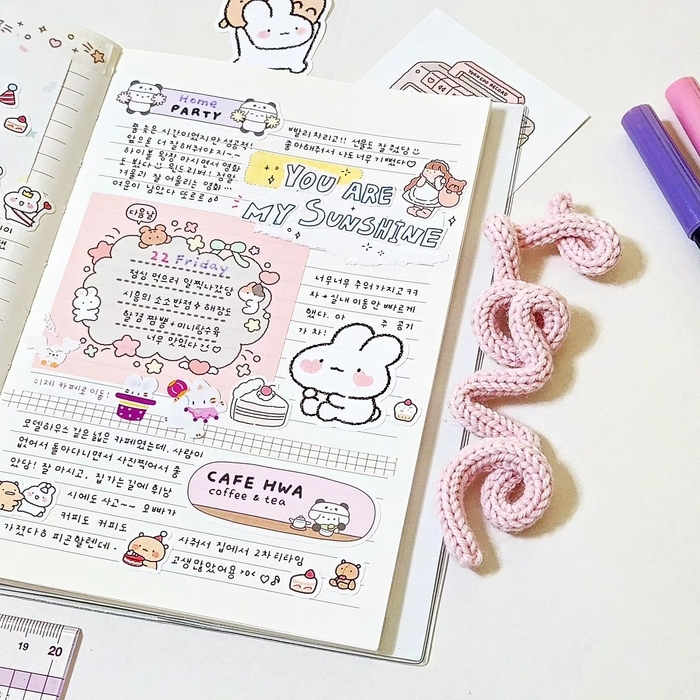 Home
PARTY
줄 늦은 시간이었지만 성공적!
앞으로 더 잘해줘야지~~
하이볼 왕창 마시면서 영화
도 봤다 윈드리버! 정말
겨울과 잘 어울리는 영화...
여운이 남았다 또르르
빨리 차리고!! 선물도 잘 줬당
좋아해줘서 나도 너무 기뻤다♡
YOU ARE
MY SUNSHINE
다음날
22 Friday
점심 먹으러 일찍 나갔당
시흥의 소소반점 해장도
할겸 짬뽕 + 미니탕수육
너무 맛있다
너무너무 추워가지고 ㅋㅋ
차 → 실내 이동만 빠르게
했다. 아 주 공기
가 차!
이제 카페로 이동!
모델하우스 같은 넓은 카페였는데, 사람이
없어서 돌아다니면서 사진찍어서 좋
았당! 잘 마시고, 집 가는길에 휘낭
시에도 사고~~ 오빠가
커피도 커피도
가졌다 피곤할텐데
사줘서 집에서 2차 티타임
고생많았어용 ♡
CAFE HWA
coffee & tea
19 20